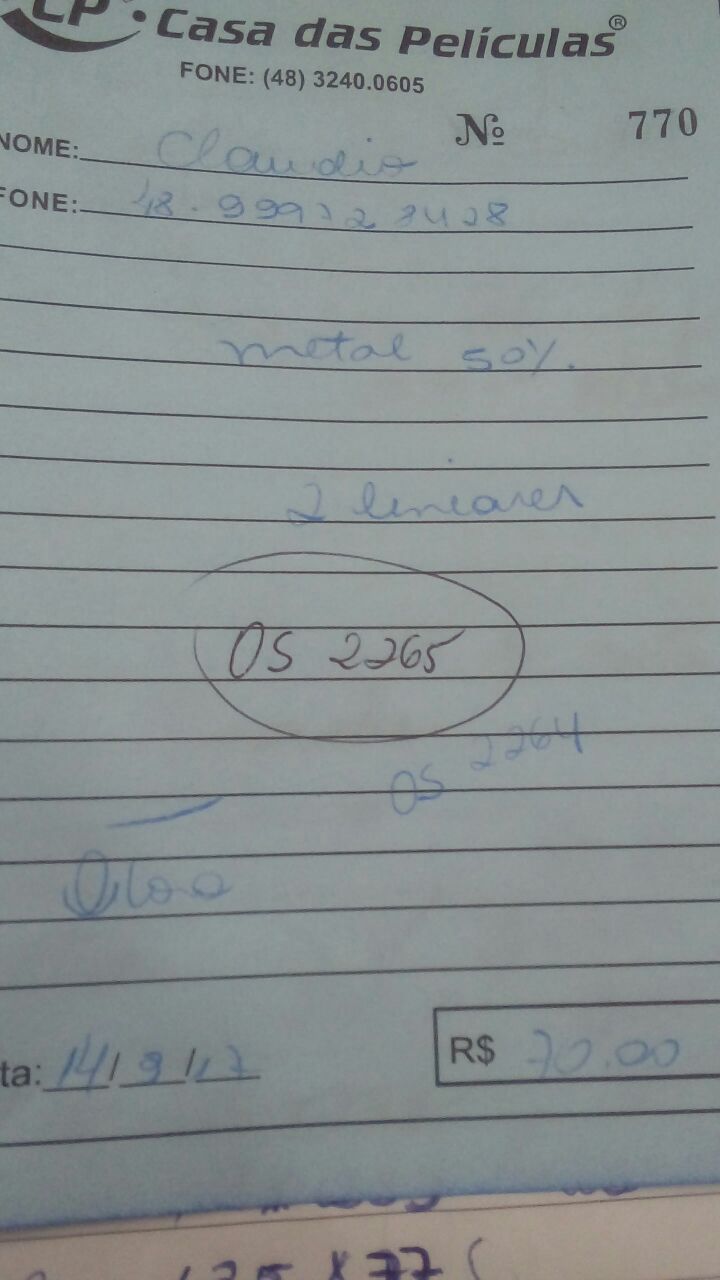 CP • Casa das Películas®
FONE: (48) 3240.0605
Nº 770
NOME: Claudio
FONE: 48.
metal 50%.
2 liniares
OS 2265
OS 2264
ta: 14/9/17
R$ 70.00
135 x 77